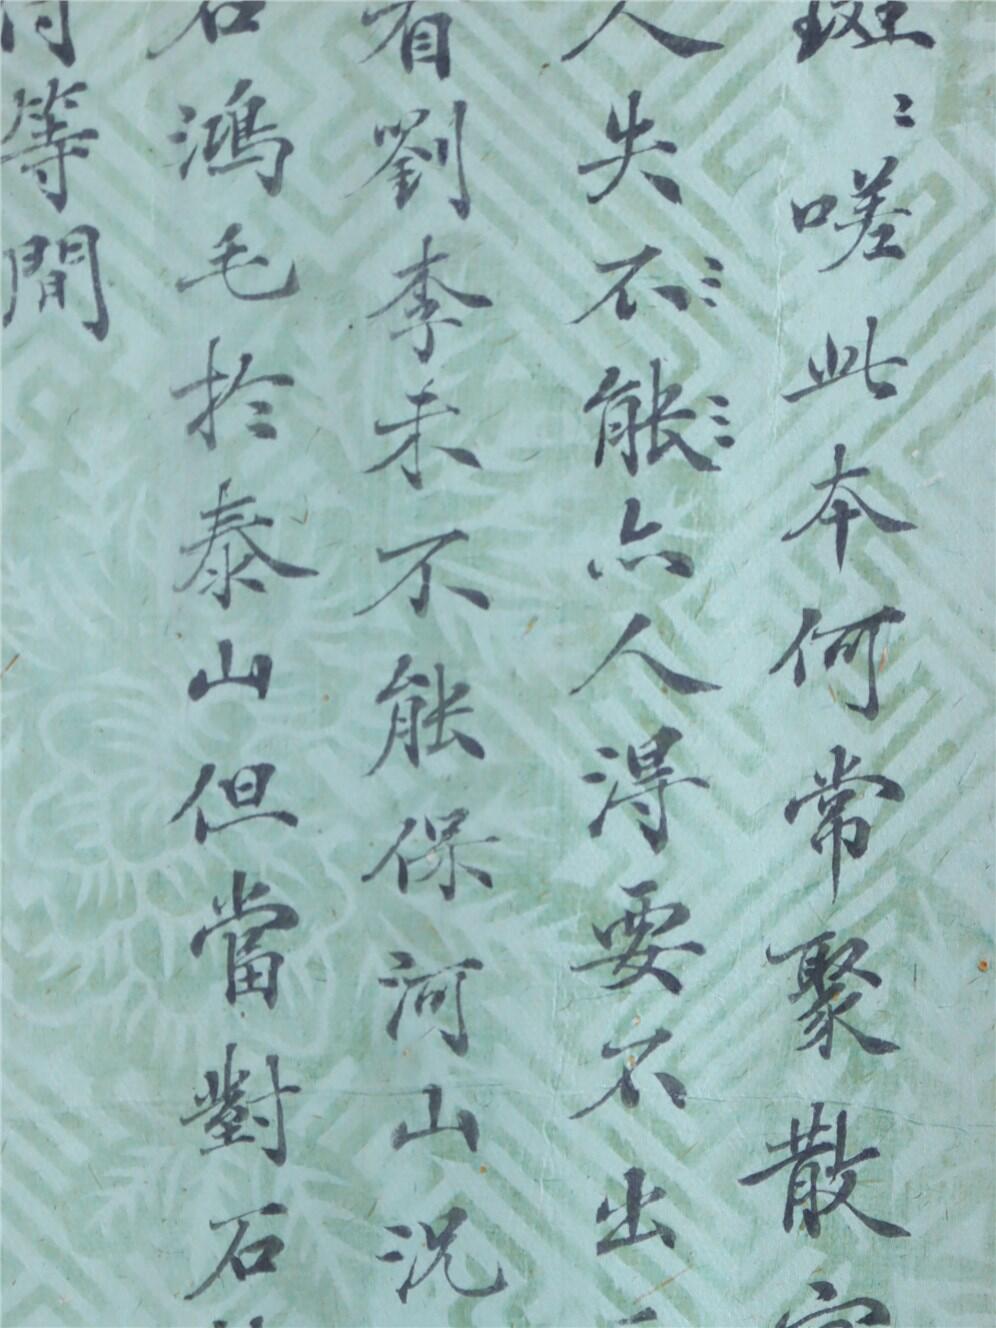 斑〻嗟此本何常聚散
人失不〻能〻亦人得要不出
有劉李未不能保河山況
石鴻毛於泰山但當對石
等閒